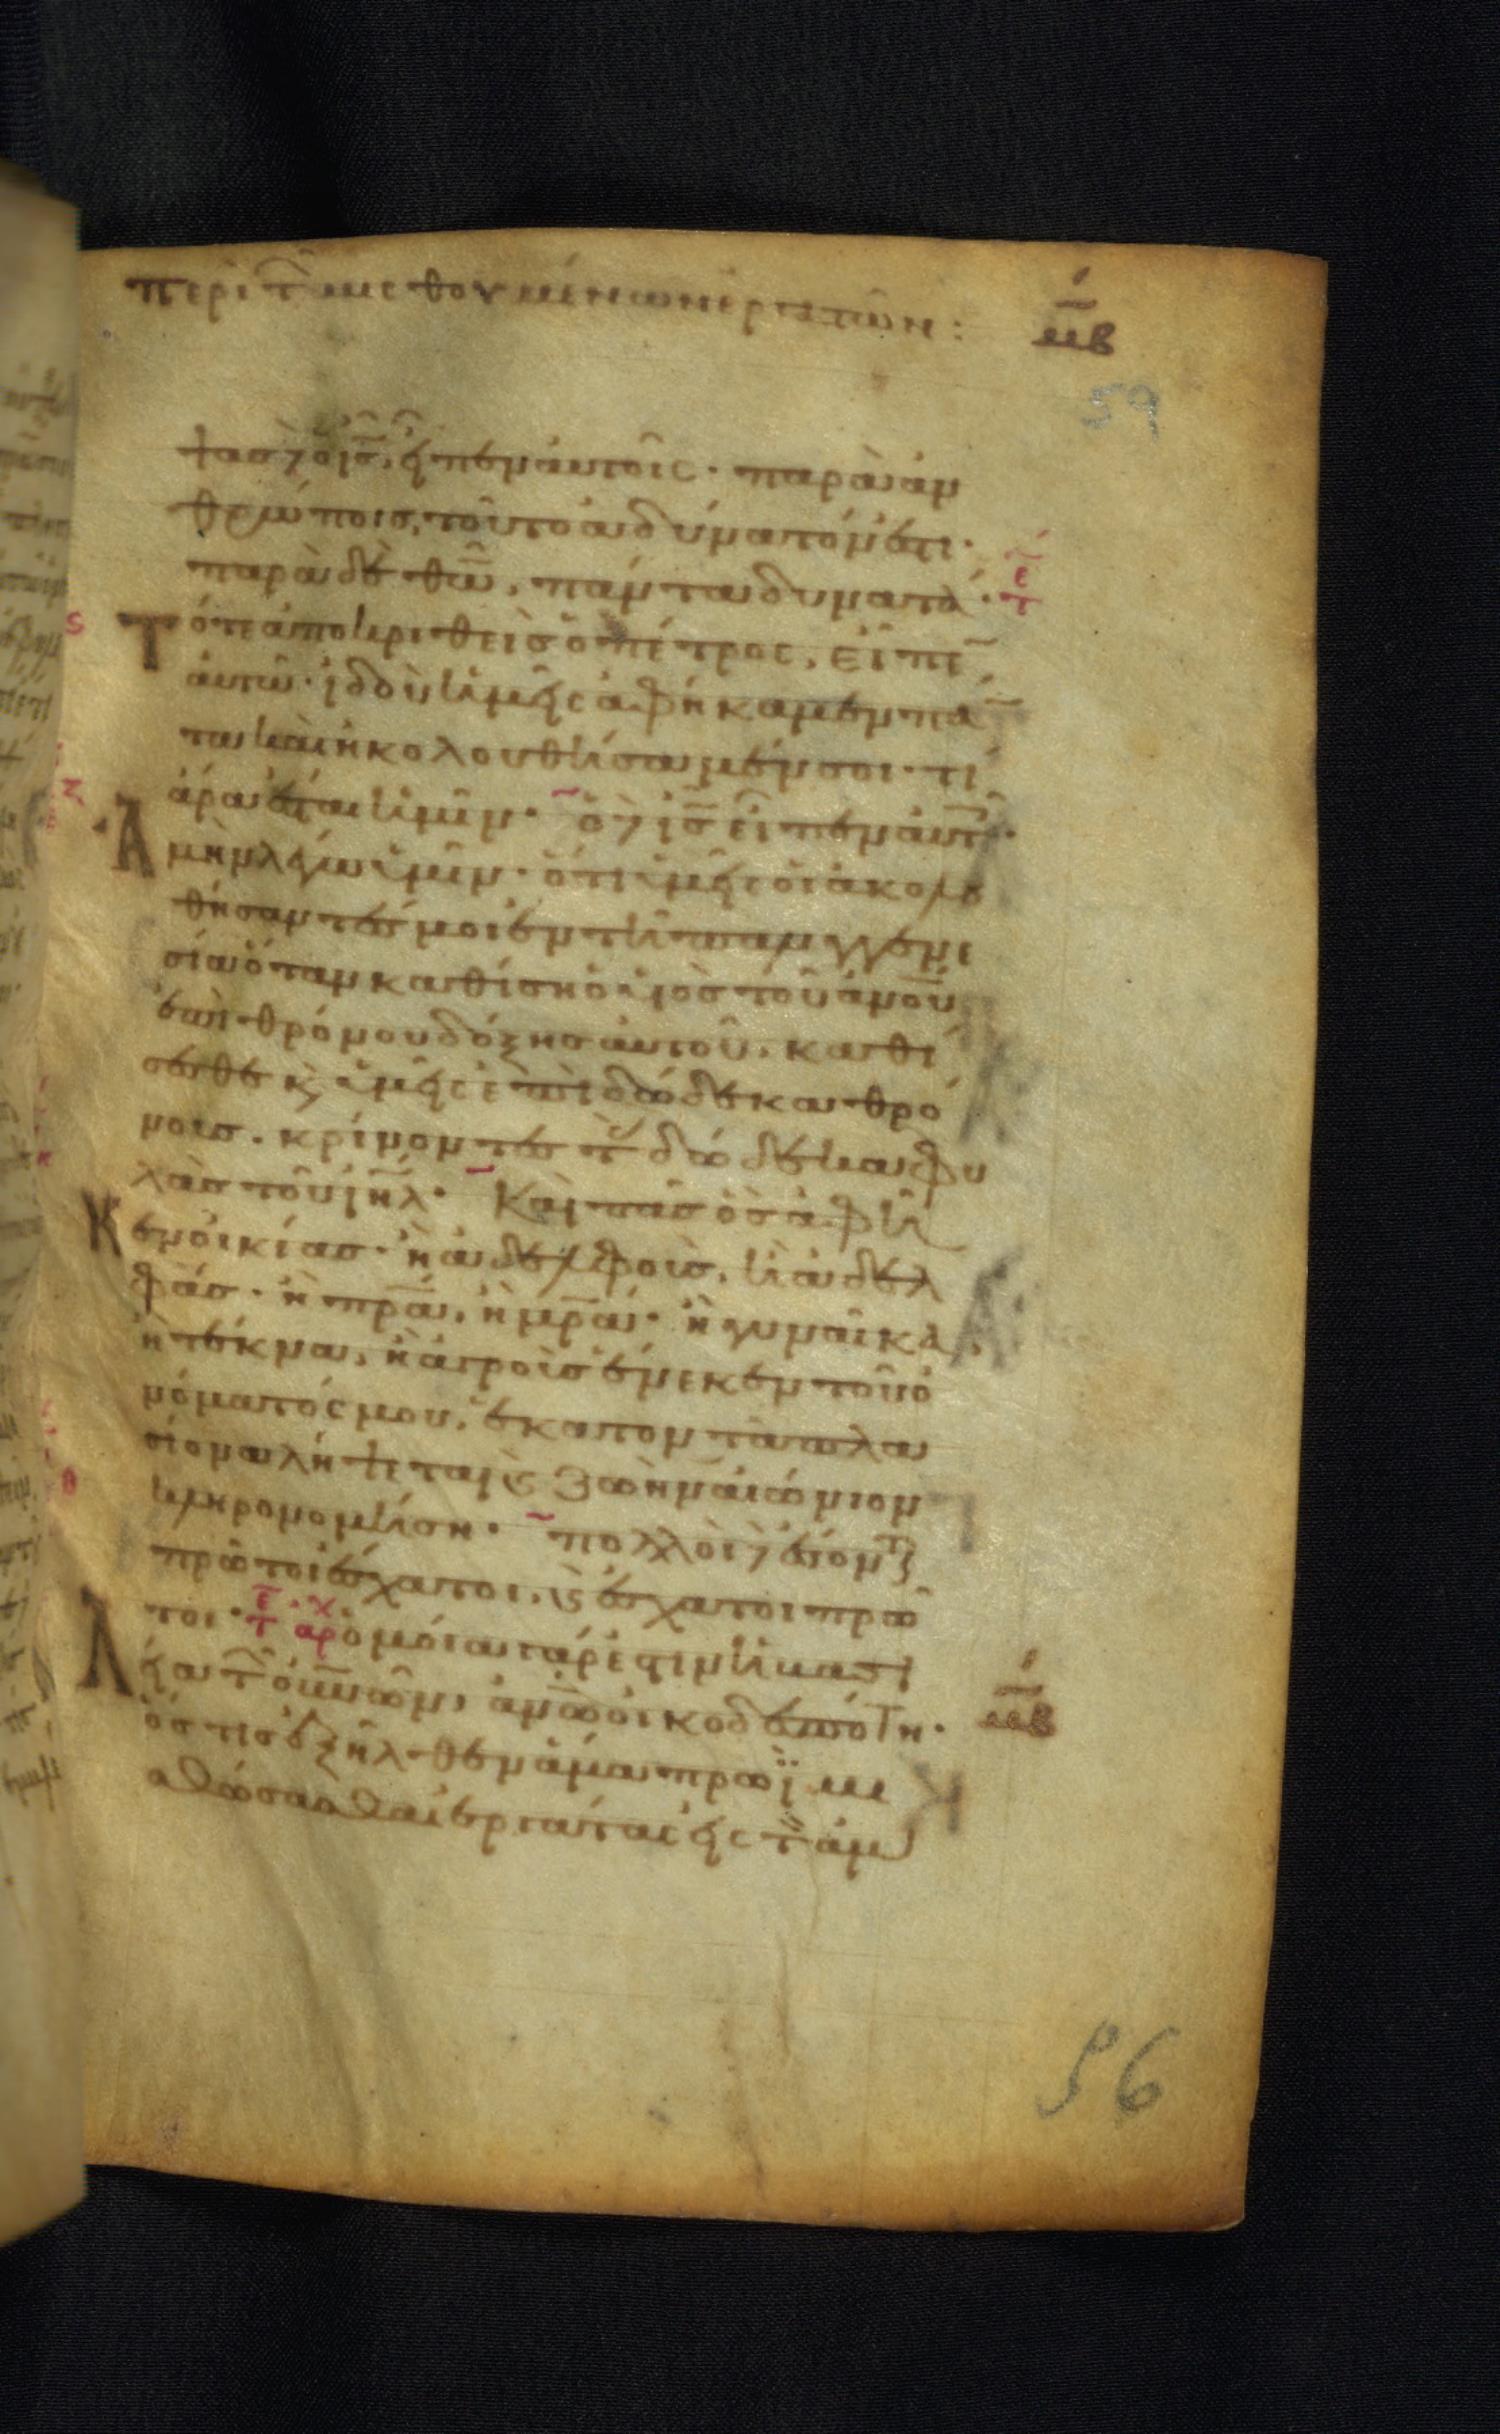 περὶ τῶ μισθουμένων ἐργατῶν: μβ
59
ψας δὲ ὁ ις, εἶπεν αὐτοῖς· παρὰ ἀν
θρώποις, τοῦτο ἀδύνατόν ἐστι·
παρὰ δὲ θω, πάντα δυνατά· τε
Τότε ἀποκριθεὶς ὁ πέτρος, εἶπε
αὐτῶ· ἰδοὺ ἡμεῖς ἀφήκαμεν πά
τα καὶ ἠκολουθήσαμέν σοι· τί
ἄρα ἔσται ἡμῖν· ὁ δὲ ις εἶπεν αὐτ·
Ἀμὴν λέγω ὑμῖν· ὅτι ὑμεῖς οἱ ἀκολου
θήσαντές μοι ἐν τῆ παλιγγενε
σία ὅταν καθίση ὁ υἱὸς τοῦ ανου
ἐπὶ θρόνου δόξης αὐτοῦ, καθί
σεσθε κ ὑμεῖς ἐπὶ δώδεκα θρό
νους. κρίνοντες τ δώδεκα φυ
λὰς τοῦ ιηλ· Καὶ πᾶς ὃς ἀφῆ
κεν οἰκίας· ἢ ἀδελφοὺς, ἢ ἀδελ
φάς· ἢ πρα, ἢ μρα· ἢ γυναῖκα,
ἢ τέκνα, ἢ ἀγροὺς ἕνεκεν τοῦ ὀ
νόματός μου, ἑκατονταπλα
σίονα λήψεται κ ζωὴν αἰώνιον
κληρονομήση· πολλοὶ δὲ ἔσοντ
πρῶτοι ἔσχατοι, κ ἔσχατοι πρῶ
τοι· τε αρχ ὁμοία γάρ ἐστιν ἡ βασι
λεία τ ουνων, ανω οἰκοδεσπότη·
ὅστις ἐξῆλθεν ἅμα πρωῒ μι
σθώσασθαι ἐργάτας εἰς τ ἀμ
μβ
56